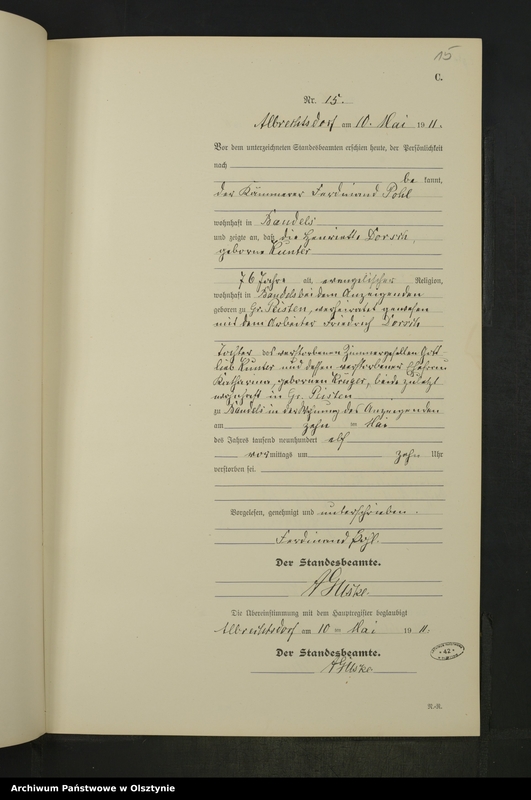 15
C.
Nr. 15.
Albrechtsdorf am 10. Mai 1911.
Vor dem unterzeichneten Standesbeamten erschien heute, der Persönlichkeit
nach
be kannt,
der Kämmerer Ferdinand Pohl
wohnhaft in Bandels
und zeigte an, daß die Henriette Dorsch,
geborne Kunter
76 Jahre alt, evangelischer Religion,
wohnhaft in Bandels bei dem Anzeigenden
geboren zu Gr. Peisten, verheiratet gewesen
mit dem Arbeiter Friedrich Dorsch
Tochter des verstorbenen Zimmergesellen Gott-
lieb Kunter und dessen verstorbener Ehefrau
Katharina, gebornen Krüger, beide zuletzt
wohnhaft in Gr. Peisten
zu Bandels in der Wohnung des Anzeigenden
am zehn ten Mai
des Jahres tausend neunhundert elf
vor mittags um zehn Uhr
verstorben sei.
Vorgelesen, genehmigt und unterschrieben.
Ferdinand Pohl.
Der Standesbeamte.
Die Übereinstimmung mit dem Hauptregister beglaubigt
Albrechtsdorf am 10 ten Mai 1911.
Der Standesbeamte.
* 42 *
R.-R.
Archiwum Państwowe w Olsztynie